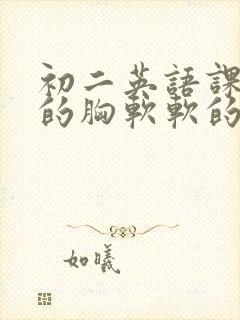 初二英語課
的胸軟軟的
如曦